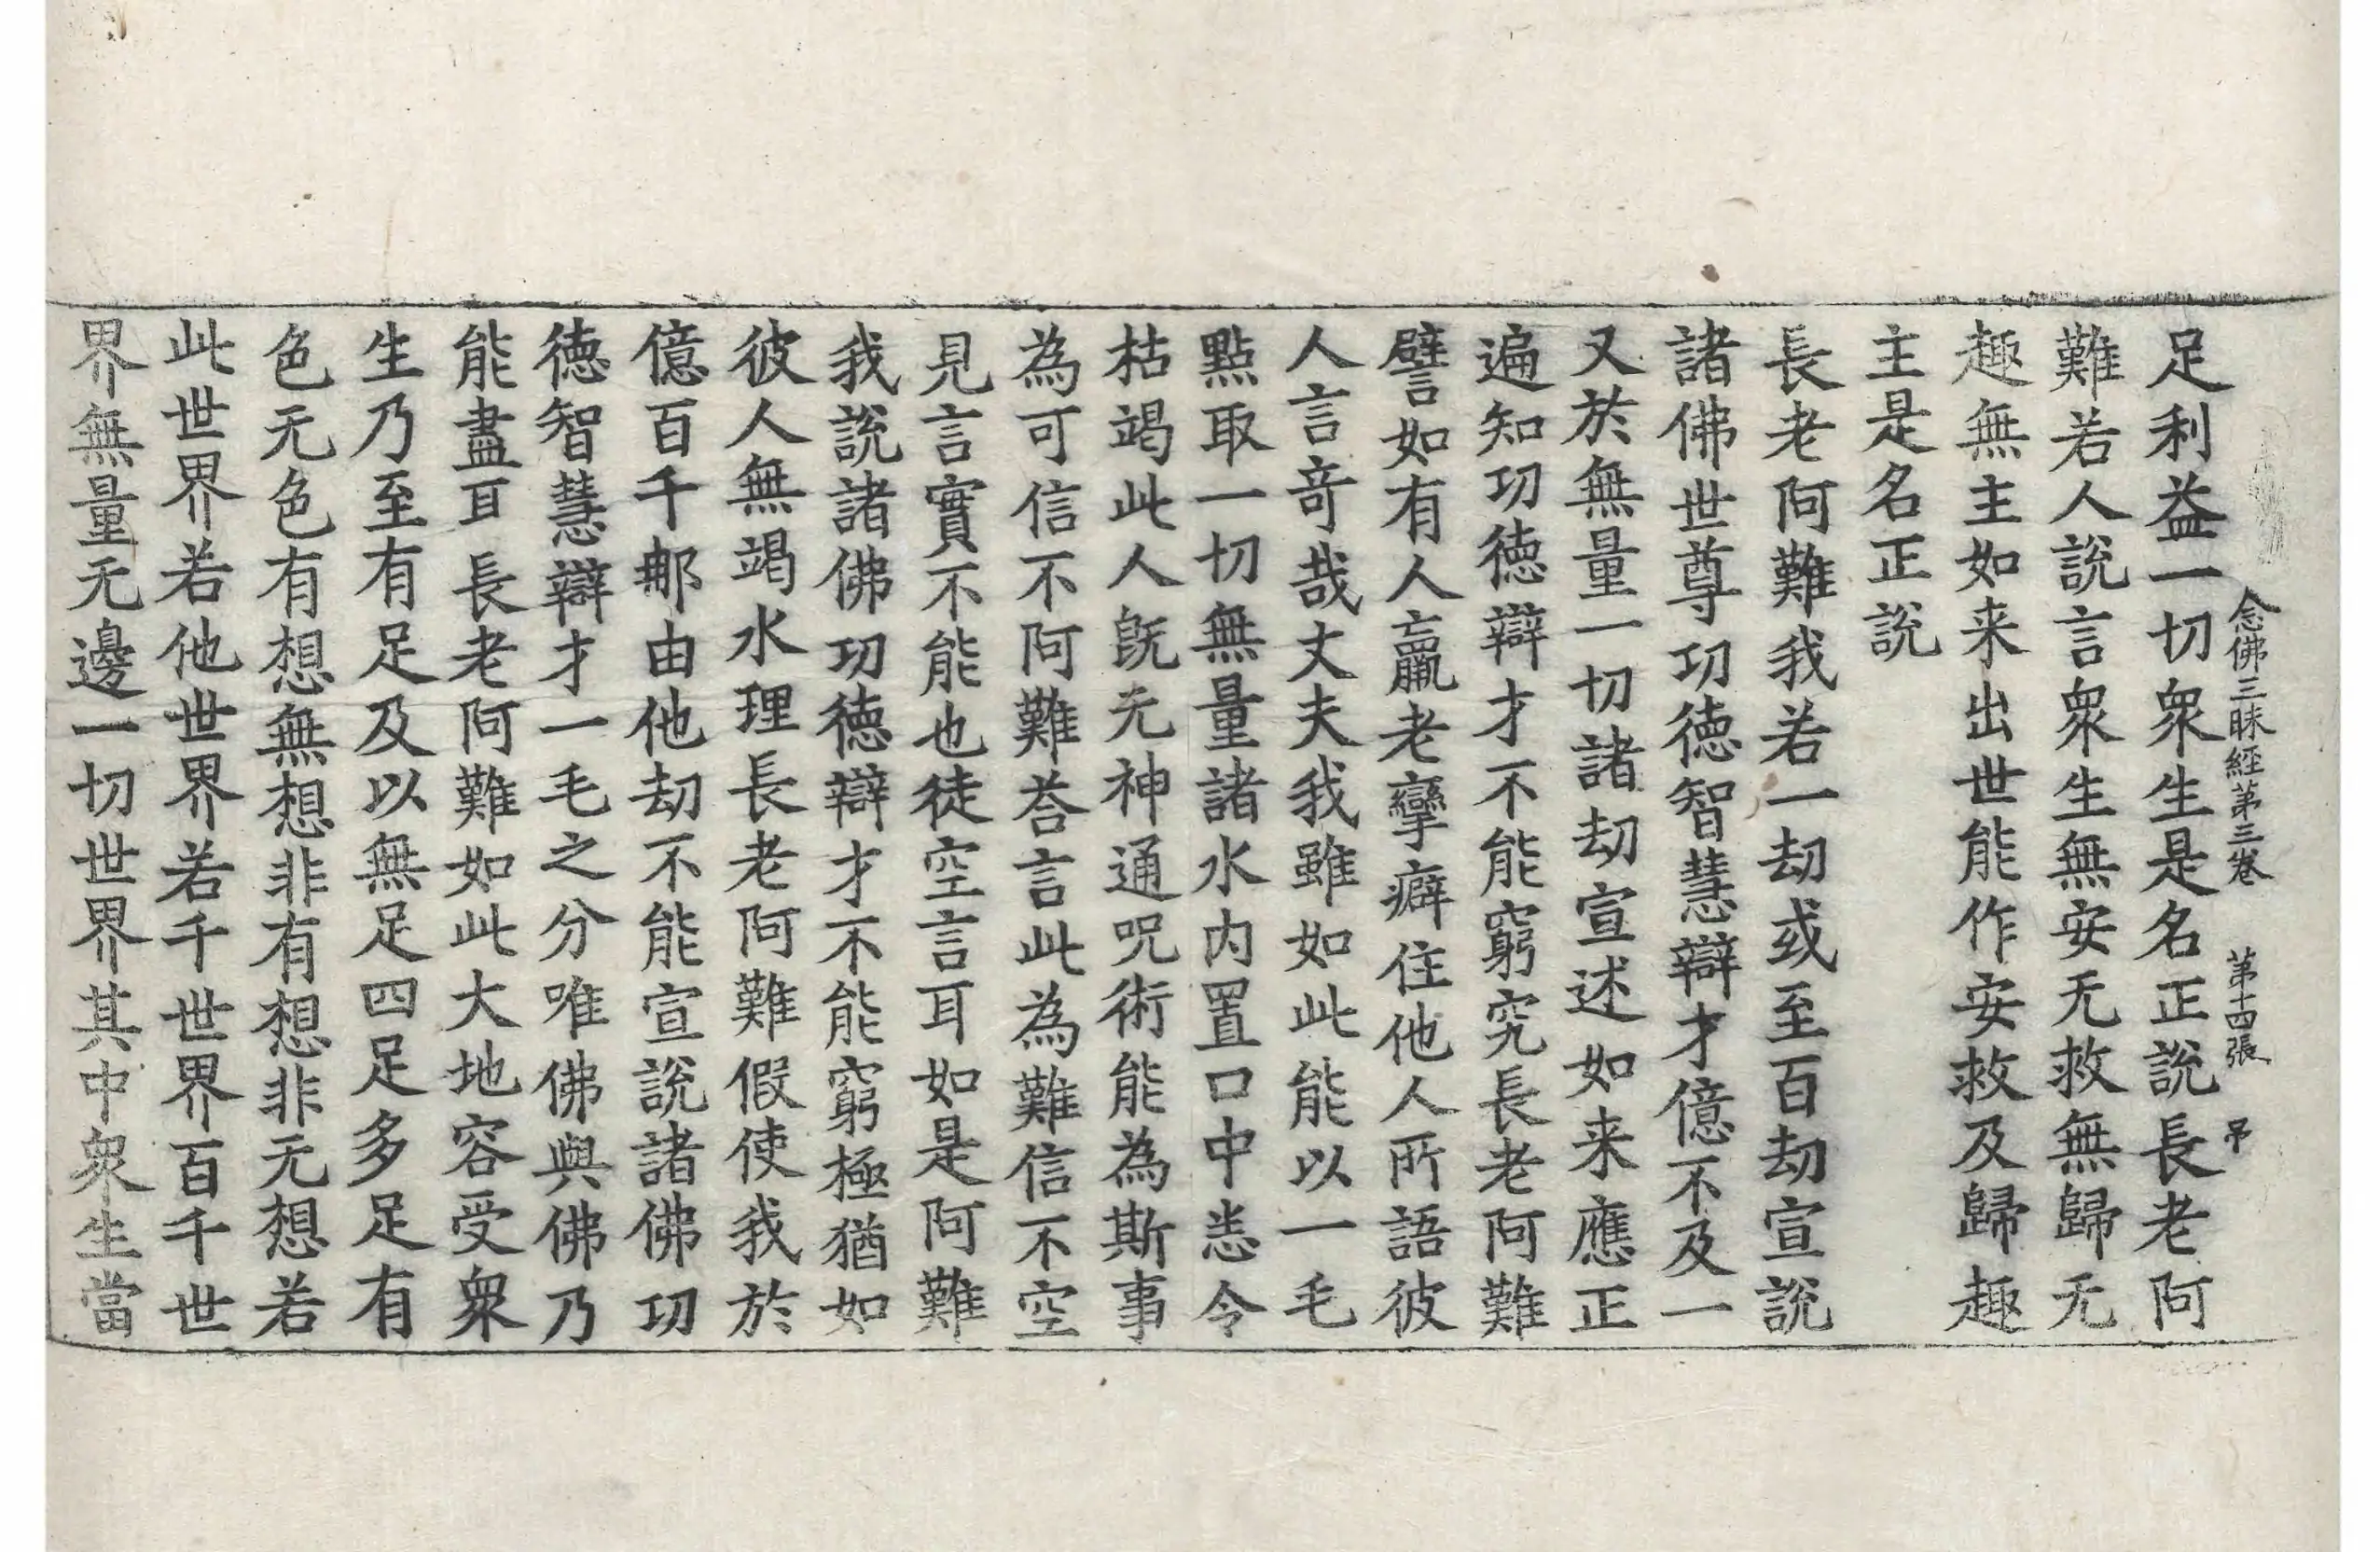 念佛三昧經第三卷 第十四張 吊
足利益一切衆生是名正說長老阿
難若人說言衆生無安无救無歸无
趣無主如来出世能作安救及歸趣
主是名正說
長老阿難我若一劫或至百劫宣說
諸佛世尊功德智慧辯才億不及一
又於無量一切諸劫宣述如来應正
遍知功德辯才不能窮究長老阿難
譬如有人羸老攣癖住他人所語彼
人言奇哉丈夫我雖如此能以一毛
點取一切無量諸水内置口中悉令
枯竭此人旣无神通呪術能為斯事
為可信不阿難荅言此為難信不空
見言實不能也徒空言耳如是阿難
我說諸佛功德辯才不能窮極猶如
彼人無竭水理長老阿難假使我於
億百千那由他劫不能宣說諸佛功
德智慧辯才一毛之分唯佛與佛乃
能盡耳長老阿難如此大地容受衆
生乃至有足及以無足四足多足有
色无色有想無想非有想非无想若
此世界若他世界若千世界百千世
界無量无邊一切世界其中衆生當